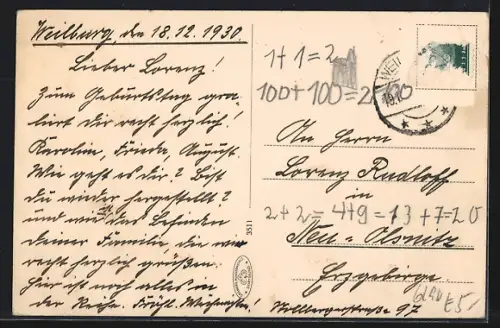 Weilburg, den 18.12.1930
Lieber Lorenz!
Zum Geburtstag gra-
liert Dir recht herzlich!
Karolin, Frieda, August.
Wie geht es dir? Bist
du wieder hergestellt?
und wie das Befinden
deiner Familie, die wir
recht herzlich grüßen.
Hier ist noch alles in
der Reihe. Fröhl. Weihnachten!
3511
1+1=2
100+100=200
WEIL
An Herrn
Lorenz Rudloff
in
2+2=4+9=13+7=20
Neu-Olsnitz
Erzgebirge
97
6240 £5,-